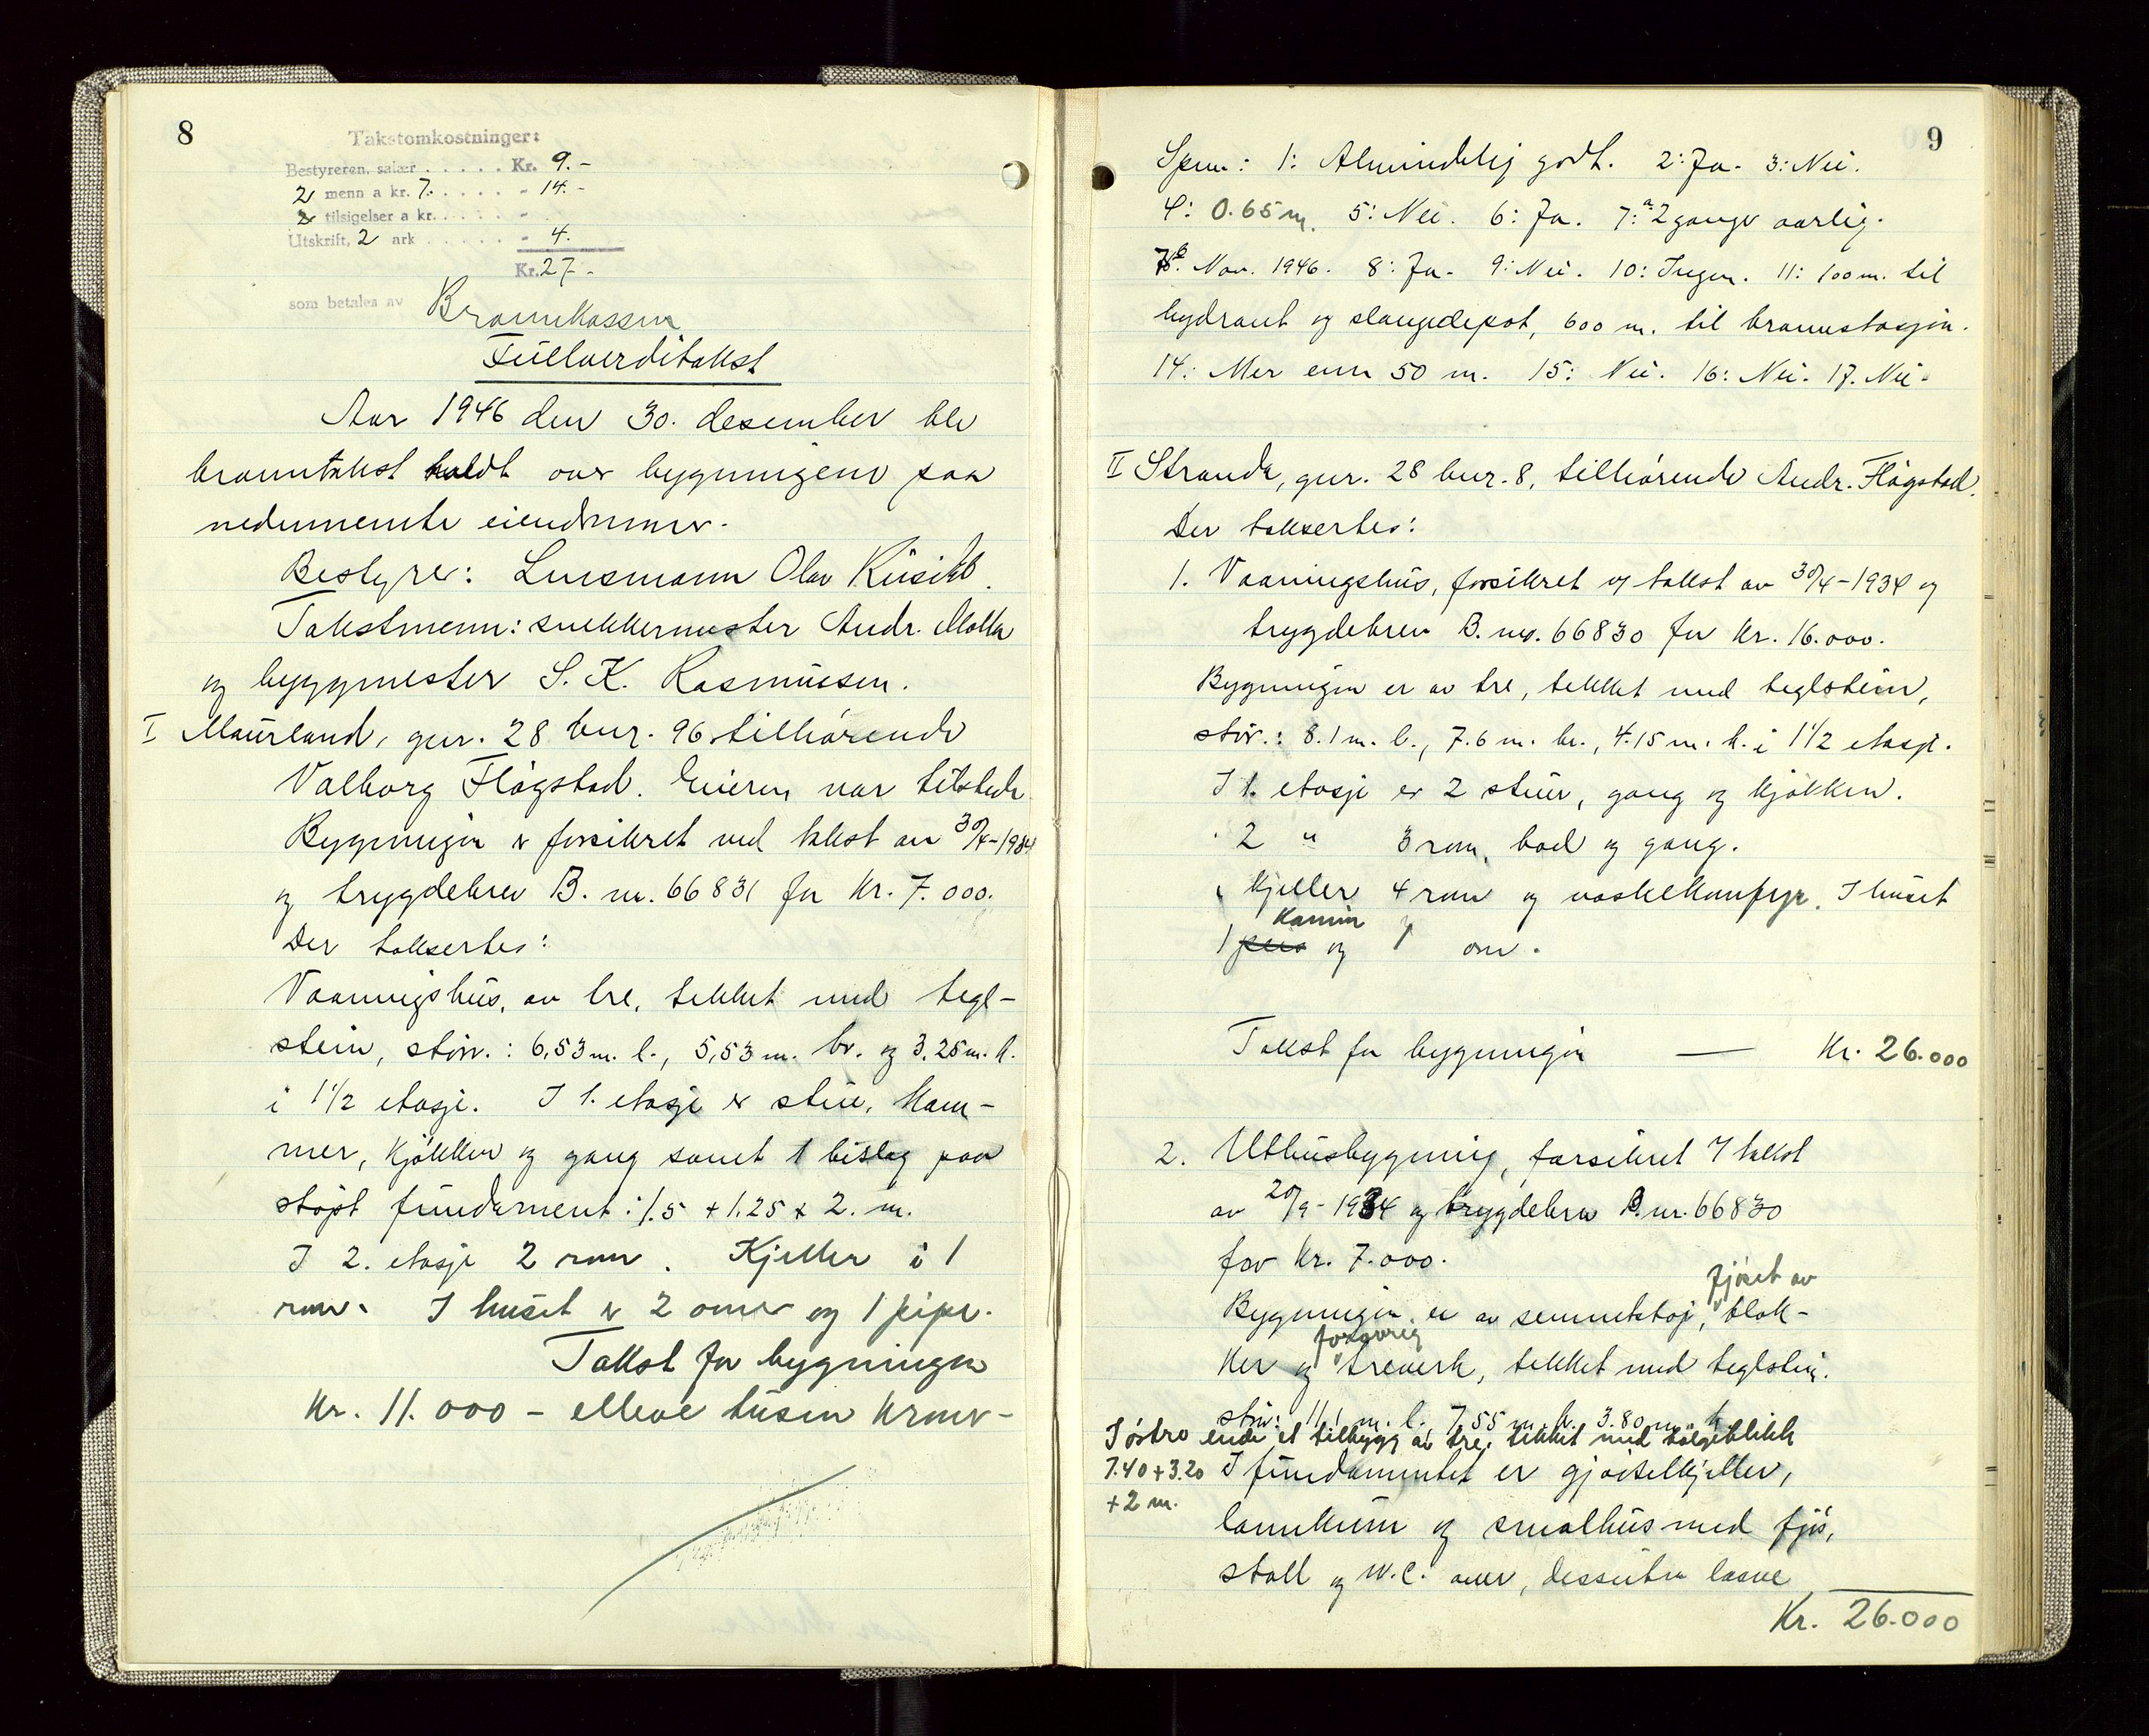 8
Takstomkostninger:
Bestyreren, salær . . . . . Kr. 9.-
2 menn a kr. 7. . . . . - 14.-
2 tilsigelser a kr. . . . . -
Utskrift, 2 ark . . . . . - 4.
Kr. 27.-
som betales av Brannkassen
Fullverditakst
Aar 1946 den 30. desember ble
branntakst holdt over bygningene paa
nedennevnte eiendommer.
Bestyrer: Lensmann Olav
Takstmenn: snekkermester Andr. Molka
og byggmester S. K. Rasmussen.
I Maurland, gnr. 28 bnr. 96 tilhørende
Valborg Fløgstad. Eieren var tilstede.
Bygningen er forsikret ved takst av 30/4-1934
og trygdebrev B. nr. 66831 for Kr. 7.000.
Der taksertes:
Vaaningshus, av tre, tekket med tegl-
stein, størr.: 6,53 m. l., 5,53 m. br. og 3.25 m. h.
i 1 1/2 etasje. I 1. etasje er stue, kam-
mer, kjøkken og gang samt 1 bislag paa
støpt fundament: 1.5 + 1.25 + 2. m.
I 2. etasje 2 rom. Kjeller i 1
rom. I huset er 2 ovner og 1 pipe.
Takst for bygningen
Kr. 11.000 - elleve tusen kroner -
9
Spm.: 1: Almindelig godt. 2: Ja. 3: Nei.
4: 0.65 m. 5: Nei. 6: Ja. 7: a 2 ganger aarlig.
7 b: Nov. 1946. 8: Ja. 9: Nei. 10: Ingen. 11: 100 m. til
hydrant og slangedepot, 600 m. til brannstasjon.
14: Mer enn 50 m. 15: Nei. 16: Nei. 17. Nei.
II Strande, gnr. 28 bnr. 8, tilhørende Andr. Fløgstad.
Der taksertes:
1. Vaaningshus, forsikret ved takst av 30/4-1934 og
trygdebrev B. nr. 66830 for Kr. 16.000.
Bygningen er av tre, tekket med teglstein,
størr.: 8.1 m. l., 7.6 m. br., 4.15 m. h. i 1 1/2 etasje.
I 1. etasje er 2 stuer, gang og kjøkken.
" 2 " 3 rom, bad og gang.
" Kjeller 4 rom og vaskekomfyr. I huset
kamin
1 peis og 1 ovn.
Takst for bygningen — Kr. 26.000
2. Uthusbygning, forsikret v/ takst
av 20/9-1934 og trygdebrev B. nr. 66830
for Kr. 7.000.
fjøset av
Bygningen er av sementstøp, blok-
forøvrig
ker og treverk, tekket med teglstein.
størr: 11,1 m. l. 7,55 m. br. 3.80 m. h.
I østre ende et tilbygg av tre, tekket med bølgeblikk
7.40 + 3.20 I fundamentet er gjødselkjeller,
+ 2 m.
lannkum og smalhus med fjøs,
stall og W.C. over, dessuten laave
Kr. 26.000